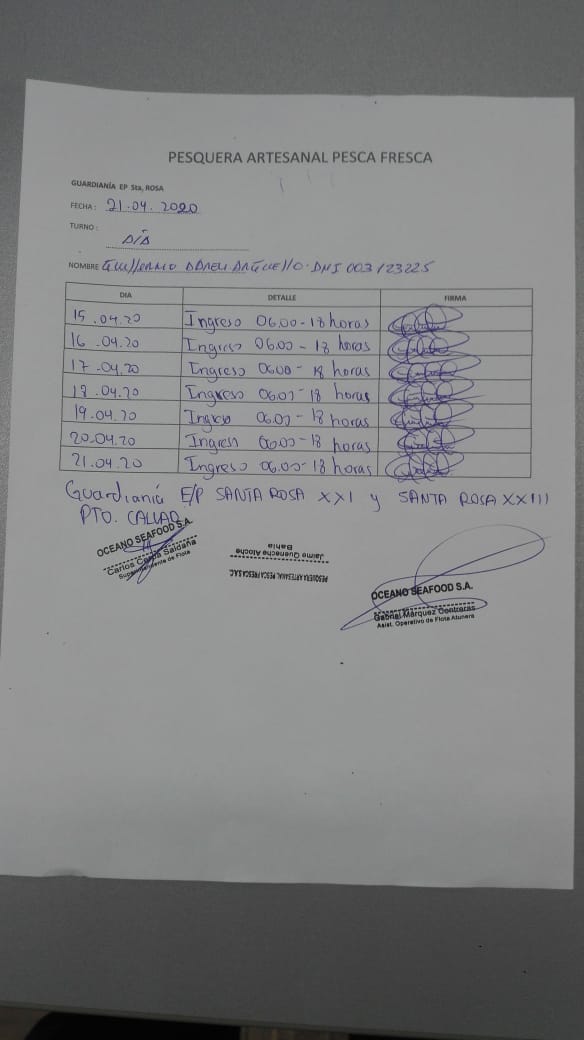 PESQUERA ARTESANAL PESCA FRESCA
GUARDIANÍA EP Sta, ROSA
FECHA: 21.04.2020
TURNO: DÍA
NOMBRE Guillermo DNI 003123225
DIA DETALLE FIRMA
15.04.20 Ingreso 06.00-18 horas
16.04.20 Ingreso 06.00-18 horas
17.04.20 Ingreso 06.00-18 horas
18.04.20 Ingreso 06.00-18 horas
19.04.20 Ingreso 06.00-18 horas
20.04.20 Ingreso 06.00-18 horas
21.04.20 Ingreso 06.00-18 horas
Guardianía E/P SANTA ROSA XXI y SANTA ROSA XXIII
PTO. CALLAO
OCEANO SEAFOOD S.A.
Carlos Saldaña
Superintendente de Flota
PESQUERA ARTESANAL PESCA FRESCA S.A.C.
Jaime Queneche Aloche
Bahía
OCEANO SEAFOOD S.A.
Gabriel Márquez Contreras
Asist. Operativo de Flota Atunera